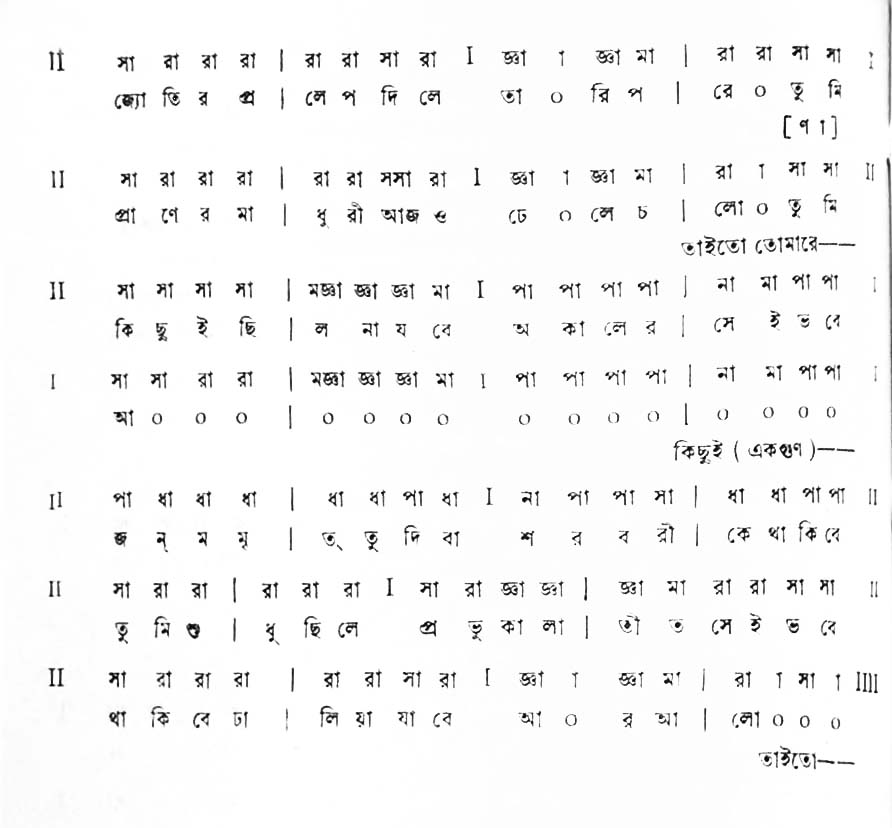 II সা রা রা রা | রা রা সা রা I জ্ঞা া জ্ঞা মা | রা রা সা সা I
জ্যো তি র প্র | লে প দি লে তা ০ রি প | রে ০ তু মি
[ ণ া ]
II সা রা রা রা | রা রা সসা রা I জ্ঞা া জ্ঞা মা | রা া সা সা II
প্রা ণে র মা | ধু রী আজ ও ঢে ০ লে চ | লো ০ তু মি
তাইতো তোমারে——
II সা সা সা সা | মজ্ঞা জ্ঞা জ্ঞা মা I পা পা পা পা | না মা পা পা I
কি ছু ই ছি | ল না য বে অ কা লে র | সে ই ভ বে
I সা সা রা রা | মজ্ঞা জ্ঞা জ্ঞা মা I পা পা পা পা | না মা পা পা I
আ ০ ০ ০ | ০ ০ ০ ০ ০ ০ ০ ০ | ০ ০ ০ ০
কিছুই ( একগুণ )——
II পা ধা ধা ধা | ধা ধা পা ধা I না পা পা মা | ধা ধা পা পা II
জ ন্ ম মৃ | ত্ তু দি বা শ র ব রী | কে থা কি বে
II সা রা রা | রা রা রা I সা রা জ্ঞা জ্ঞা | জ্ঞা মা রা রা সা সা II
তু মি শু | ধু ছি লে প্র ভু কা লা | তী ত সে ই ভ বে
II সা রা রা রা | রা রা সা রা I জ্ঞা া জ্ঞা মা | রা া সা া IIII
থা কি বে ঢা | লি য়া যা বে আ ০ র আ | লো ০ ০ ০
তাইতো——